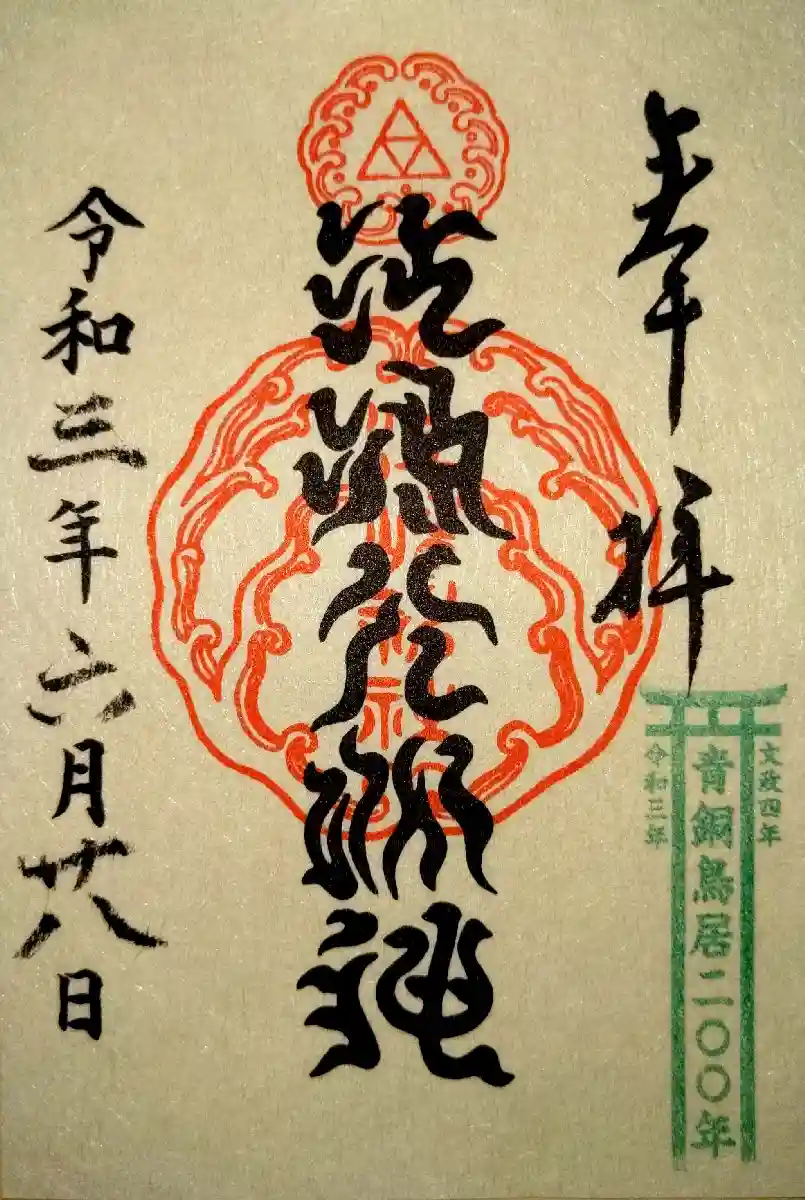 奉拝
江島大明神
令和三年六月廿八日
文政四年
青銅鳥居二〇〇年
令和三年